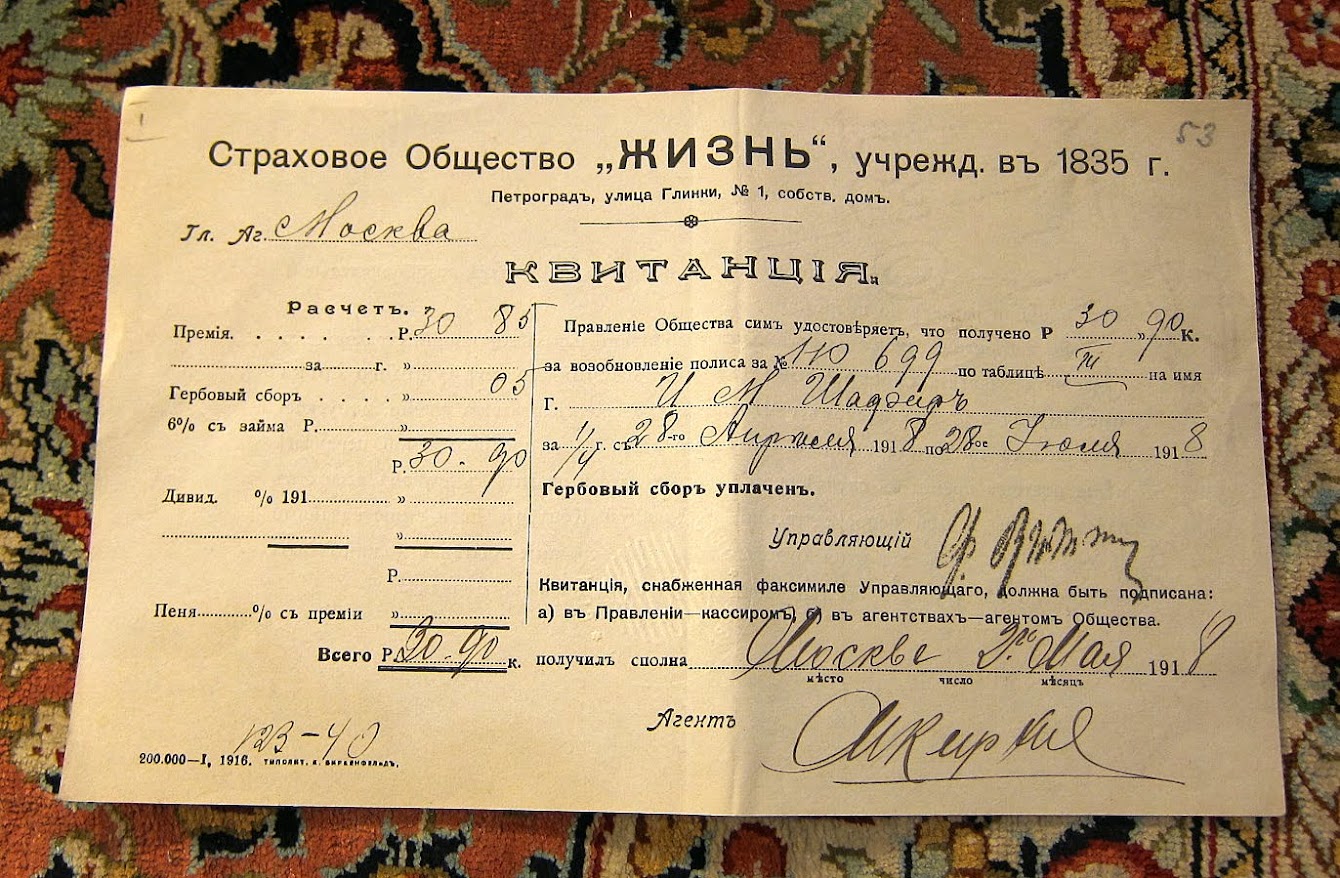 53
Страховое Общество „ЖИЗНЬ“, учрежд. въ 1835 г.
Петроградъ, улица Глинки, № 1, собств. домъ.
Гл. Аг. Москва
КВИТАНЦІЯ.
Расчетъ.
Премія. . . . . . . . Р. 30 85
за г. »
Гербовый сборъ . . . . » 05
6% съ займа Р. »
Р. 30 - 90
Дивид. % 191 »
»
Р.
Пеня % съ преміи »
Всего Р. 30-90 к.
Правленіе Общества симъ удостовѣряетъ, что получено Р 30 „ 90 К.
за возобновленіе полиса за № 110 699 по таблицѣ III на имя
Г. И М
за 1/4 г. съ 28-го Апрѣля 1918 по 28ое Іюля 1918
Гербовый сборъ уплаченъ.
Управляющій
Квитанція, снабженная факсимиле Управляющаго, должна быть подписана:
а) въ Правленіи—кассиромъ, б) въ агентствахъ—агентомъ Общества.
получилъ сполна Москве 2го Мая 1918
мѣсто число мѣсяцъ
Агентъ
123-40
200.000—I, 1916. типолит.